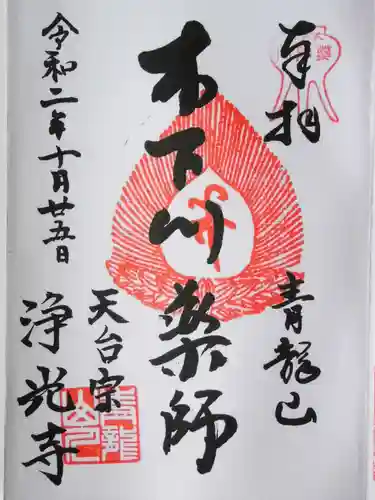 奉拝
青龍山
木下川薬師
令和二年十月廿五日
天台宗
浄光寺